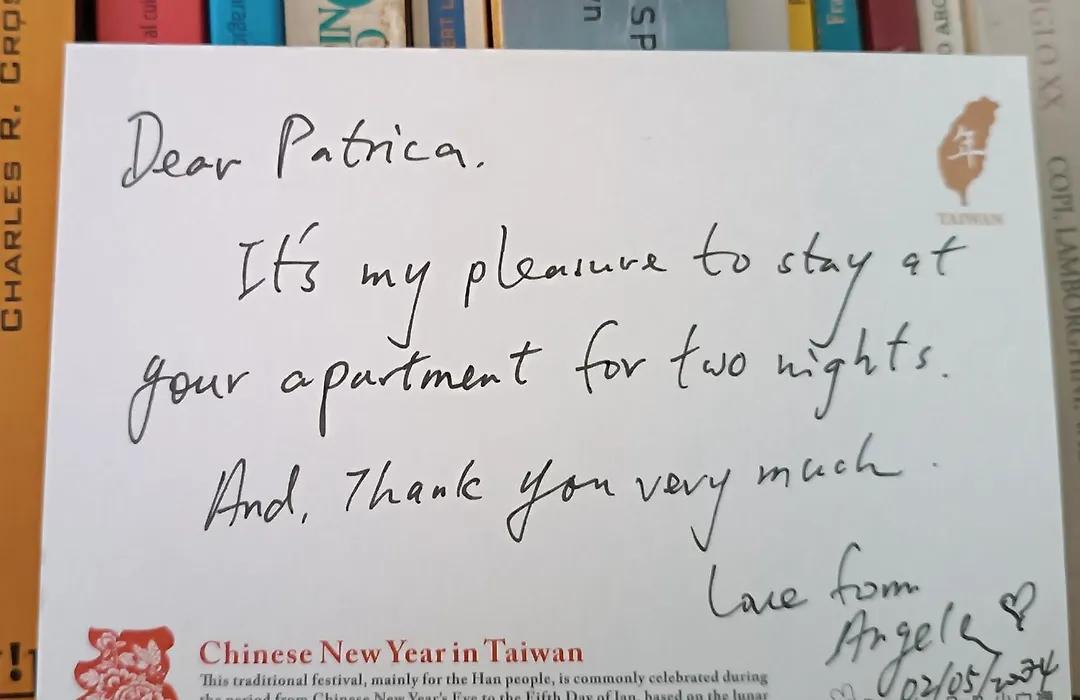 CHARLES R. CROS
Dear Patrica.
年
TAIWAN
It's my pleasure to stay at
your apartment for two nights.
And, Thank you very much.
Love form
Angela
02/05/2024
Chinese New Year in Taiwan
This traditional festival, mainly for the Han people, is commonly celebrated during
the period from Chinese New Year's Eve to the Fifth Day of Jan. based on the lunar
IGLO XX
COPI, LAMBORGHINI
O ABC
SP